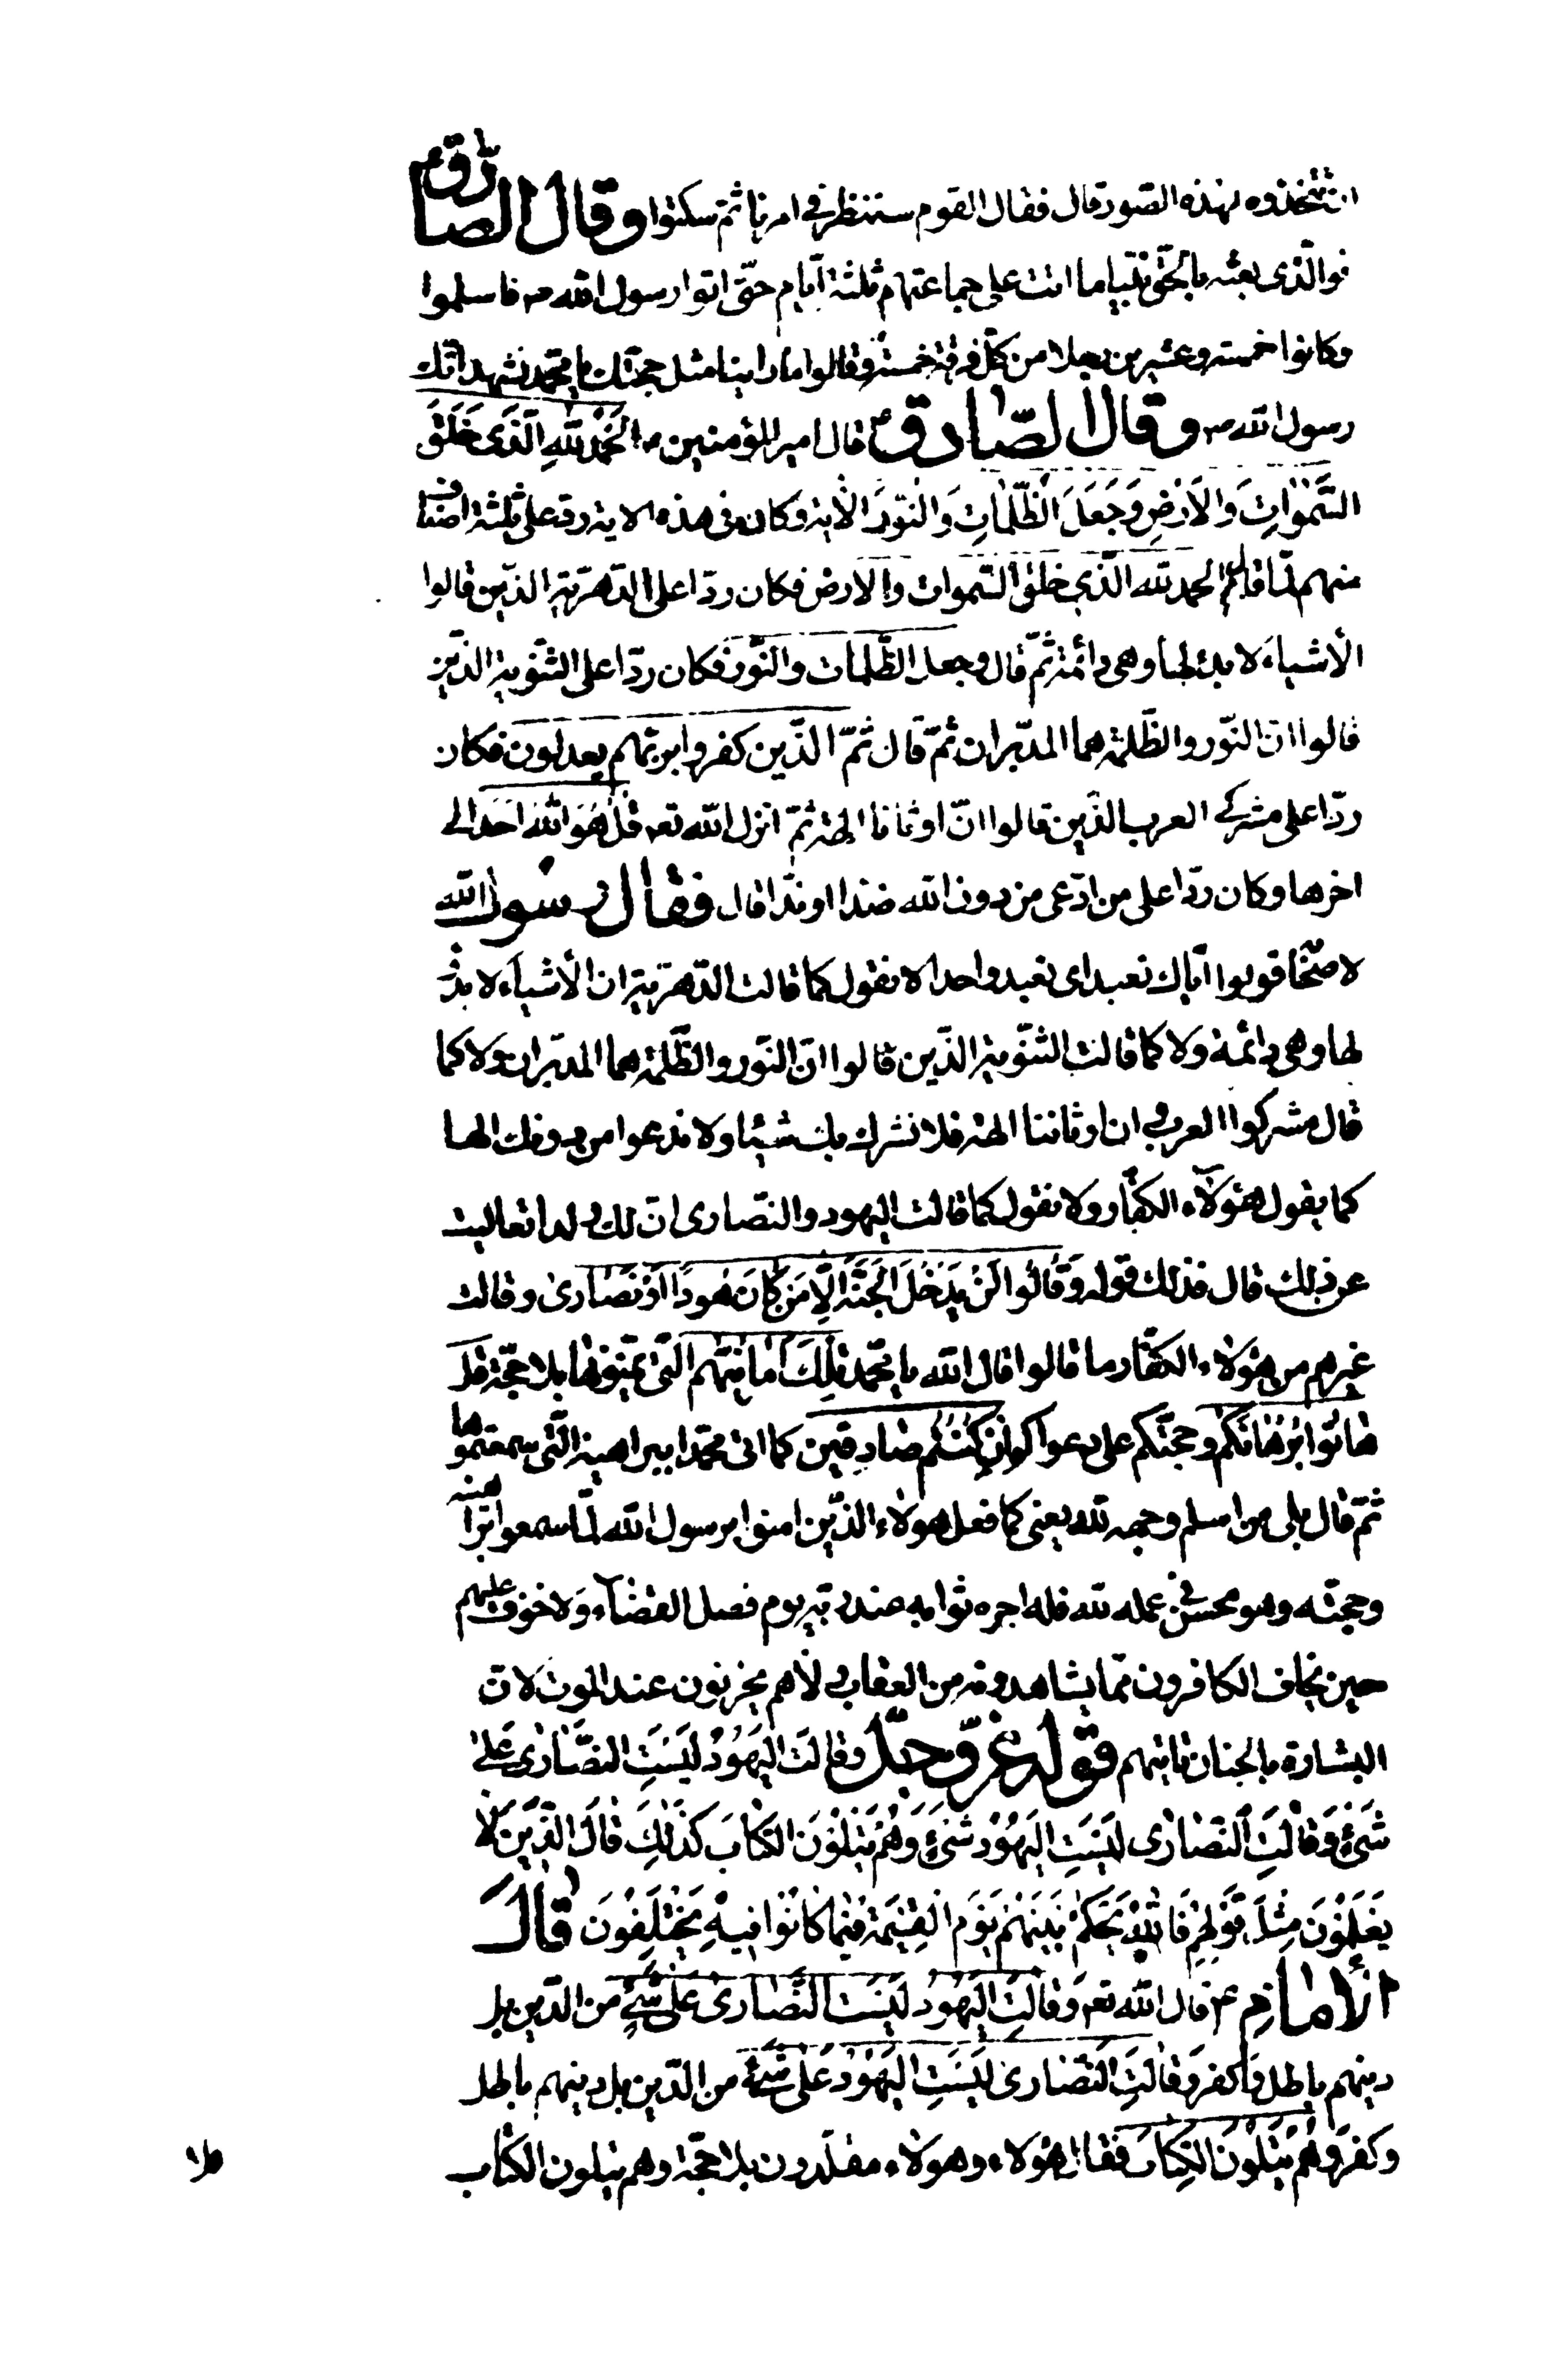 ان تتخذوه بهذه الصور قال فقال القوم سننظر في امرنا ثمّ سكتوا وقال الصادق ع
فوالّذى بعثه بالحقّ نبيّا ما اتت على جماعتهم ثلثة ايّام حتّى اتوا رسول الله ص فاسلموا
وكانوا خمسة وعشرين رجلا من كلّ فرقة خمسة وقالوا ما راينا مثل حجّتك يا محمّد نشهد انّك
رسول الله ص وقال الصّادق ع قال امير المؤمنين ع الحَمْدُ لِلّهِ الَّذى خَلَقَ
السَّمٰواتِ وَالاَرْضِ وَجَعَلَ الظُّلُماتِ وَالنّورَ الأية وكان فى هذه الاية ردّ على ثلثة اصناف
منهم لمّا قال الحمد لله الّذي خلق السّموات والارض فكان ردّا على الدّهريّة الّذين قالوا
الأشياء لا بدء لها وهى دائمة ثمّ قال وجعل الظّلمات والنّور فكان ردّا على الثّنويّة الّذين
قالوا انّ النّور والظّلمة هما المدبّران ثمّ قال ثمّ الّذين كفروا بربّهم يعدلون فكان
ردّا على مشركي العرب الّذين قالوا انّ اوثاننا الهة ثمّ انزل الله تعه قُلْ هُوَ اللهُ اَحَدٌ الى
اخرها وكان ردّا على من ادّعى من دون الله ضدّا او ندّا قال فقال رسول الله
لاصحابه قولوا ايّاك نعبد اى نعبد واحدا لا نقول كما قالت الدّهريّة ان الأشياء لا بدء
لها وهى دائمة ولا كما قالت الثّنويّة الّذين قالوا انّ النّور والظّلمة هما المدبّران ولا كما
قال مشركوا العرب ان اوثاننا الهة فلا نشرك بك شيئا ولا ندعوا من دونك الها
كما يقول هؤلآء الكفّار ولا نقول كما قالت اليهود والنّصارى انّ لك ولدا تعاليت
عن ذلك قال فذلك قوله وَقالُوا لَنْ يَدْخُلَ الْجَنَّةَ اِلّا مَنْ كانَ هُودًا اَوْ نَصارىٰ وقالت
غيرهم من هؤلاء الكفّار ما قالوا قال الله يا محمّد تِلْكَ اَمانِيُّهُم الّتى يتمنّونها بلا حجّة قل
هاتُوا بُرْهانَكُم وحجّتكم على دعواكم اِنْ كُنْتُم صادِقين كما اتى محمّد ببراهينه الّتى سمعتموها
ثمّ قال بلى من اسلم وجهه لله يعنى كما فعل هولاء الّذين امنوا برسول الله لمّا سمعوا براهينه
وحجّته وهو محسن في عمله لله فله اجره ثوابه عند ربّه يوم فصل القضآء ولا خوف عليهم
حين يخاف الكافرون ممّا يشاهدونه من العقاب ولا هم يحزنون عند الموت لانّ
البشارة بالجنان تاتيهم قوله عزّ وجلّ وقالَتِ اليَهُودُ لَيْسَتِ النَّصارىٰ عَلىٰ
شَىْءٍ وَقالَتِ النَّصارىٰ لَيْسَتِ اليَهُودُ شَىْءٍ وَهُمْ يَتْلُونَ الكِتابَ كَذٰلِكَ قالَ الَّذينَ لا
يَعْلَمُونَ مِثْلَ قَوْلِهِم فَاللهُ يَحْكُمُ بَيْنَهُمْ يَوْمَ القِيٰمَةِ فيما كانُوا فيهِ يَخْتَلِفُونَ قالَ
الأمام ع قال الله تعه وَقالَتِ اليَهُودُ لَيْسَتِ النَّصارىٰ عَلىٰ شَىْءٍ من الدّين بل
دينهم باطل وكفر وَقالَتِ النَّصارىٰ لَيْسَتِ اليَهُودُ عَلىٰ شَىْءٍ من الدّين بل دينهم باطل
وكفر وَهُمْ يَتْلُونَ الكِتابَ فقال هؤلاء وهولاء مقلّدون بلا حجّة وهم يتلون الكتاب